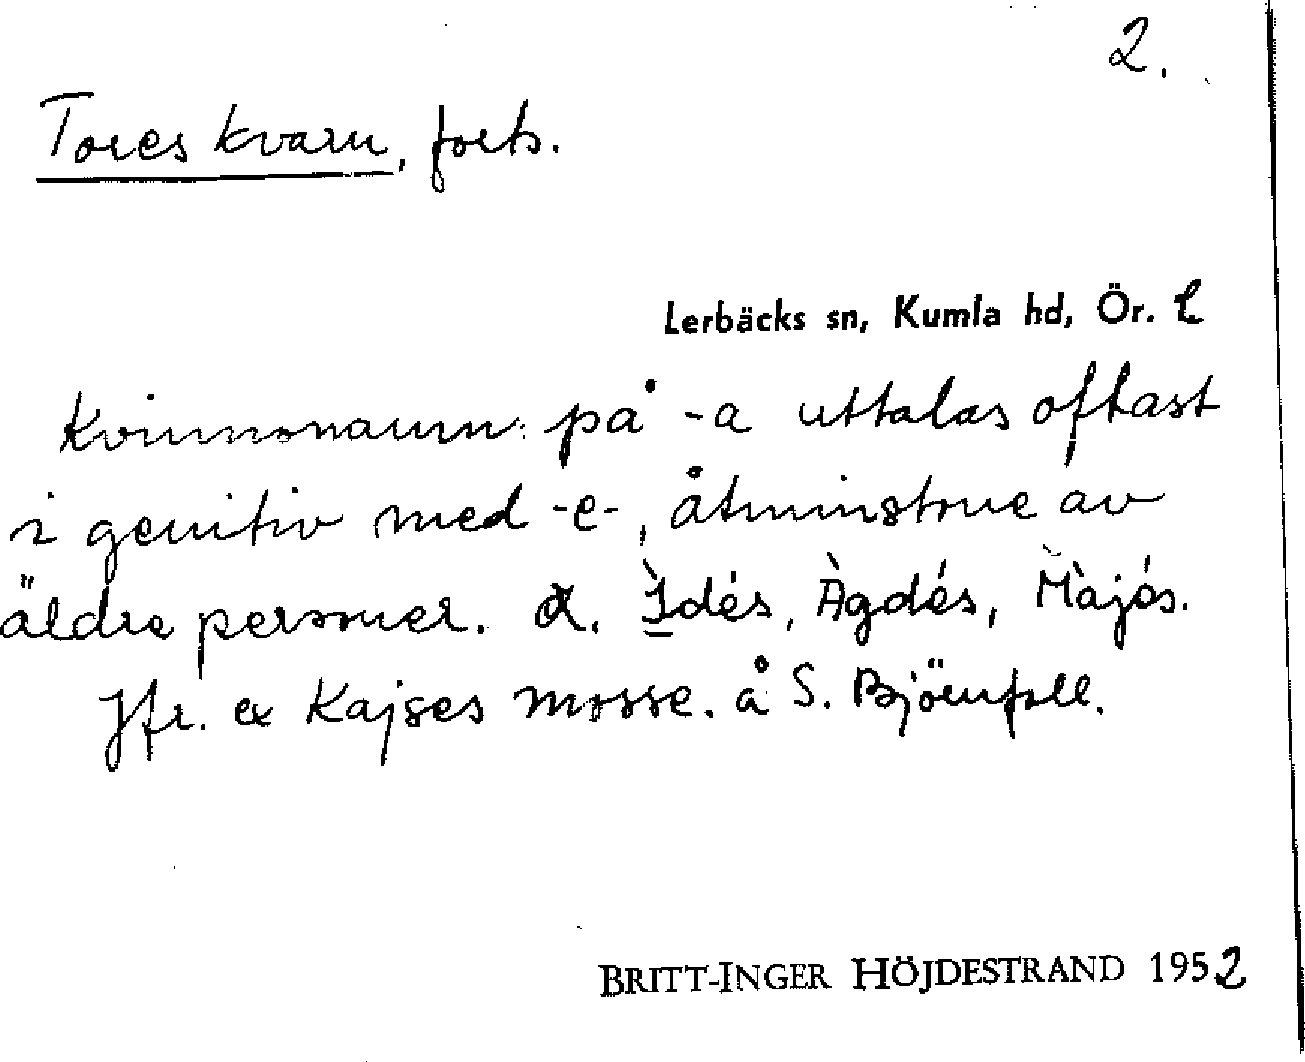 2.
Tores kvarn, forts.
Lerbäcks sn, Kumla hd, Ör. l
Kvinnonamn på -a uttalas oftast
i genitiv med -e-, åtminstone av
äldre personer. ex. Ìdés, Àgdés, Màjés.
Jfr. ex Kajses mosse. å S. Björnfall.
BRITT-INGER HÖJDESTRAND 1952